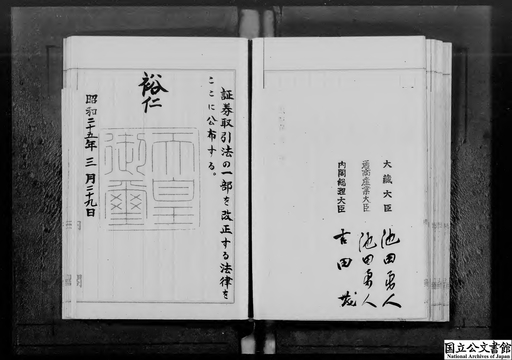 大蔵大臣 池田勇人
通商産業大臣 池田勇人
内閣総理大臣 吉田茂
証券取引法の一部を改正する法律を
ここに公布する。
裕仁
天皇
御璽
昭和二十五年三月二十九日
国立公文書館
National Archives of Japan